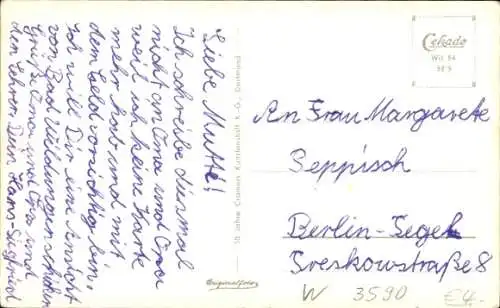 Liebe Mutti!
Ich schreibe diesmal
nicht an Oma und Opa
weil ich keine Karte
mehr hab und mit
dem Geld vorsichtig bin.
Ich will Dir eine Ansicht
von Bad Wildungen schicken
Grüße Oma und Opa und
den Lehrer. Dein Hans-Siegfried
50 Jahre Cramers Kunstanstalt K.-G., Dortmund
Originalfoto
Cekade
Wil 54
An Frau Margarete
Seppisch
Berlin-Tegel
Treskowstraße 8
W 3590 €4